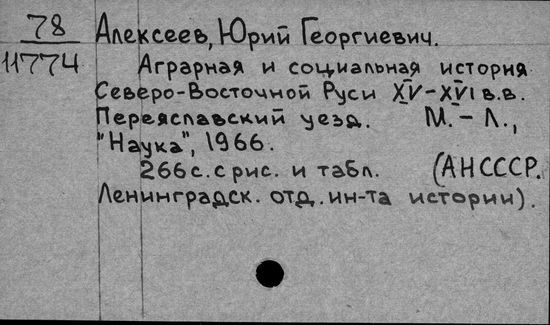 78 Алексеев, Юрий Георгиевич.
11774 Аграрная и социальная история
Северо-Восточной Руси XV-XVI в.в.
Переяславский уезд. М.-Л.,
"Наука", 1966.
266 с. с рис. и табл. (АН СССР.
Ленинградск. отд. ин-та истории).